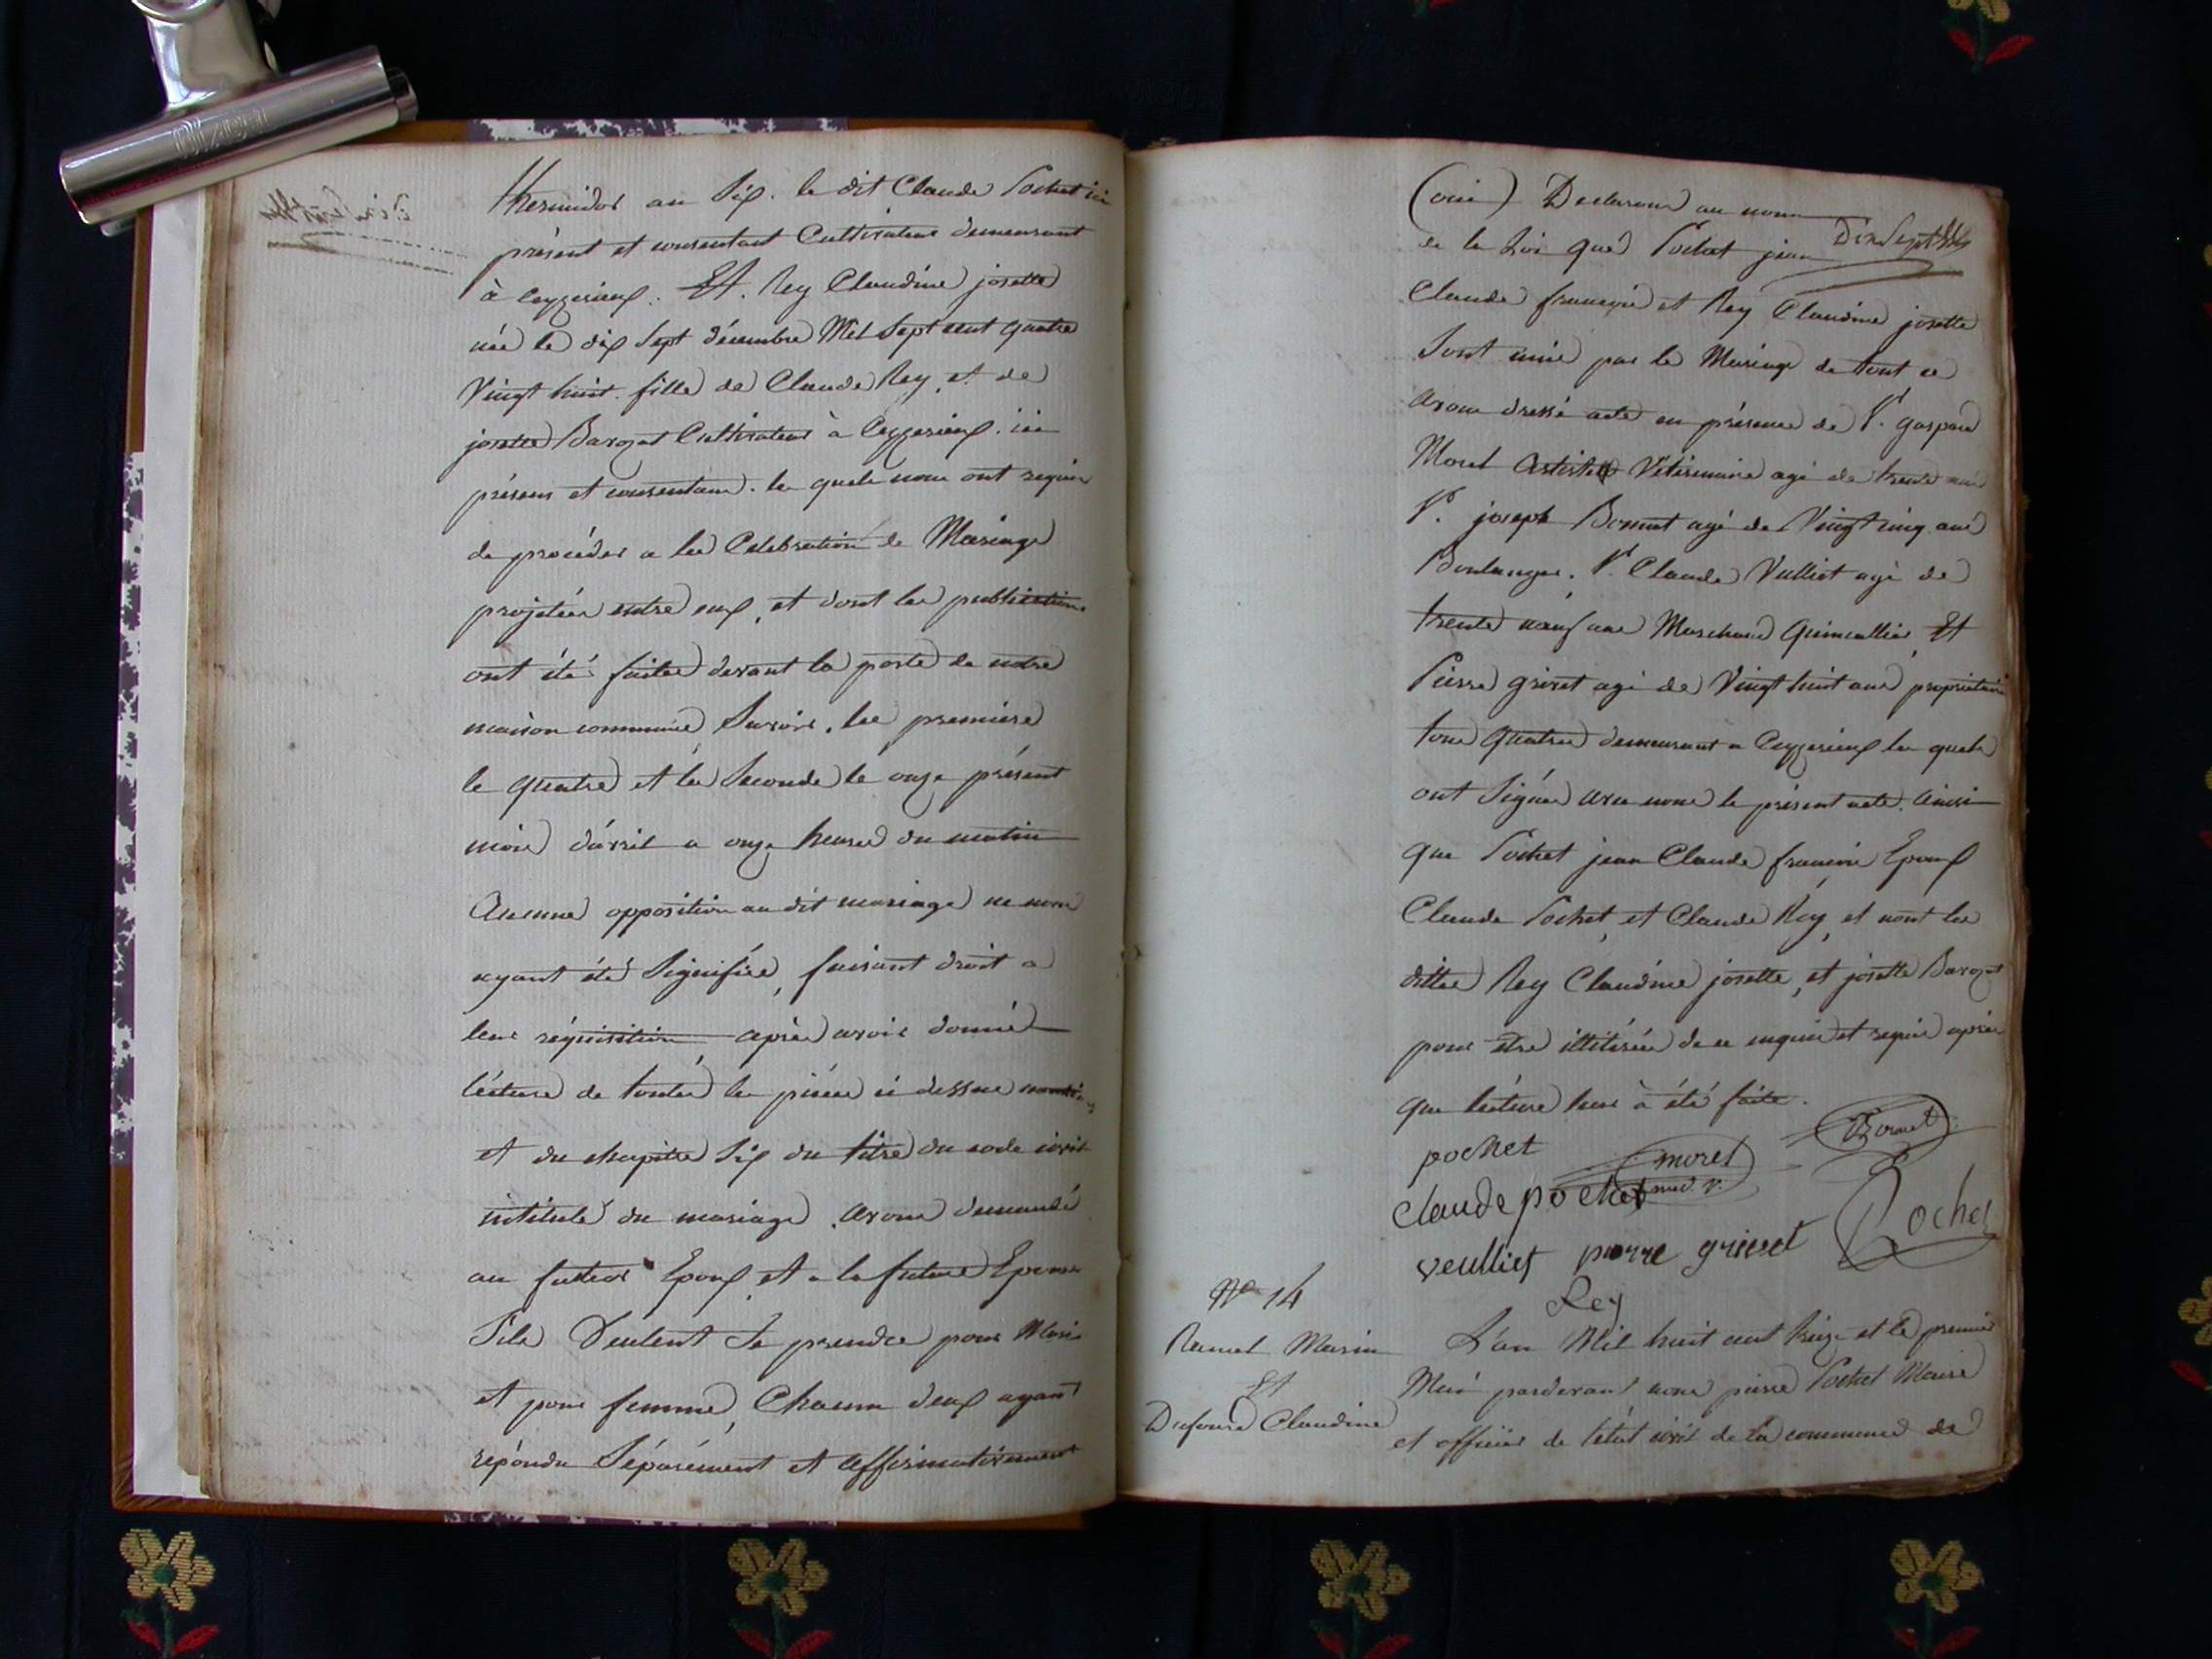 thermidor an Six. le dit Claude Pochet ici
présent et consentant Cultivateur demeurant
à Ceyzerieux. Et. Rey Claudine josette
née le dix Sept décembre Mil Sept cent quatre
Vingt huit. fille de Claude Rey, et de
josette Barozat Cultivateurs à Ceyzerieux. ici
présens et consentans. les quels nous ont requis
de procéder a la Celebration de Mariage
projettée entre eux, et dont les publications
ont été faites devant la porte de notre
maison commune Savoir, la premiere
le quatre et la Seconde le onze présent
mois d'avril a onze heures du matin
Aucune opposition au dit mariage ne nous
ayant été Signifiée, faisant droit a
leur réquisition après avoir donné
lecture de toutes les pièces ci dessus
et du chapitre Six du titre du code civil
intitulé du mariage. avons demandé
au futur Epoux et a la future Epouse
S'ils Veulent Se prendre pour Mari
et pour femme, Chacun deux ayant
répondu Séparément et affirmativement
Dix Sept
(oui) Declarons au nom
de la Loi que Pochet jean
Claude françois et Rey Claudine josette
Sont unis par le Mariage de tout ce
avons dressé acte en présence de Sr. gaspard
Morel Artiste Vétérinaire agé de trente ans
Sr. joseph Bornet agé de Vingt cinq ans
Boulanger. Sr. Claude Vulliet agé de
trente neuf ans Marchand Quincallier, Et
Pierre grivet agé de Vingt huit ans propriétaire
tous quatre demeurant a Ceyzerieux les quels
ont Signés avec nous le présent acte. Ainsi
que Pochet jean Claude françois Epoux
Claude Pochet, et Claude Rey, et nont les
dittes Rey Claudine josette, et josette Barozat
pour etre illitérées de ce enquis et requis après
que lecture leur à été faite.
pochet
morel
med. v.
Bornet
claude pochet
Pochet
veulliet pierre grivet
Rey
No 14
Ramel Marin
Et
Dufour Claudine
L'an Mil huit cent treize et le premier
Mai pardevant nous pierre Pochet Maire
et officier de l'état civil de la commune de